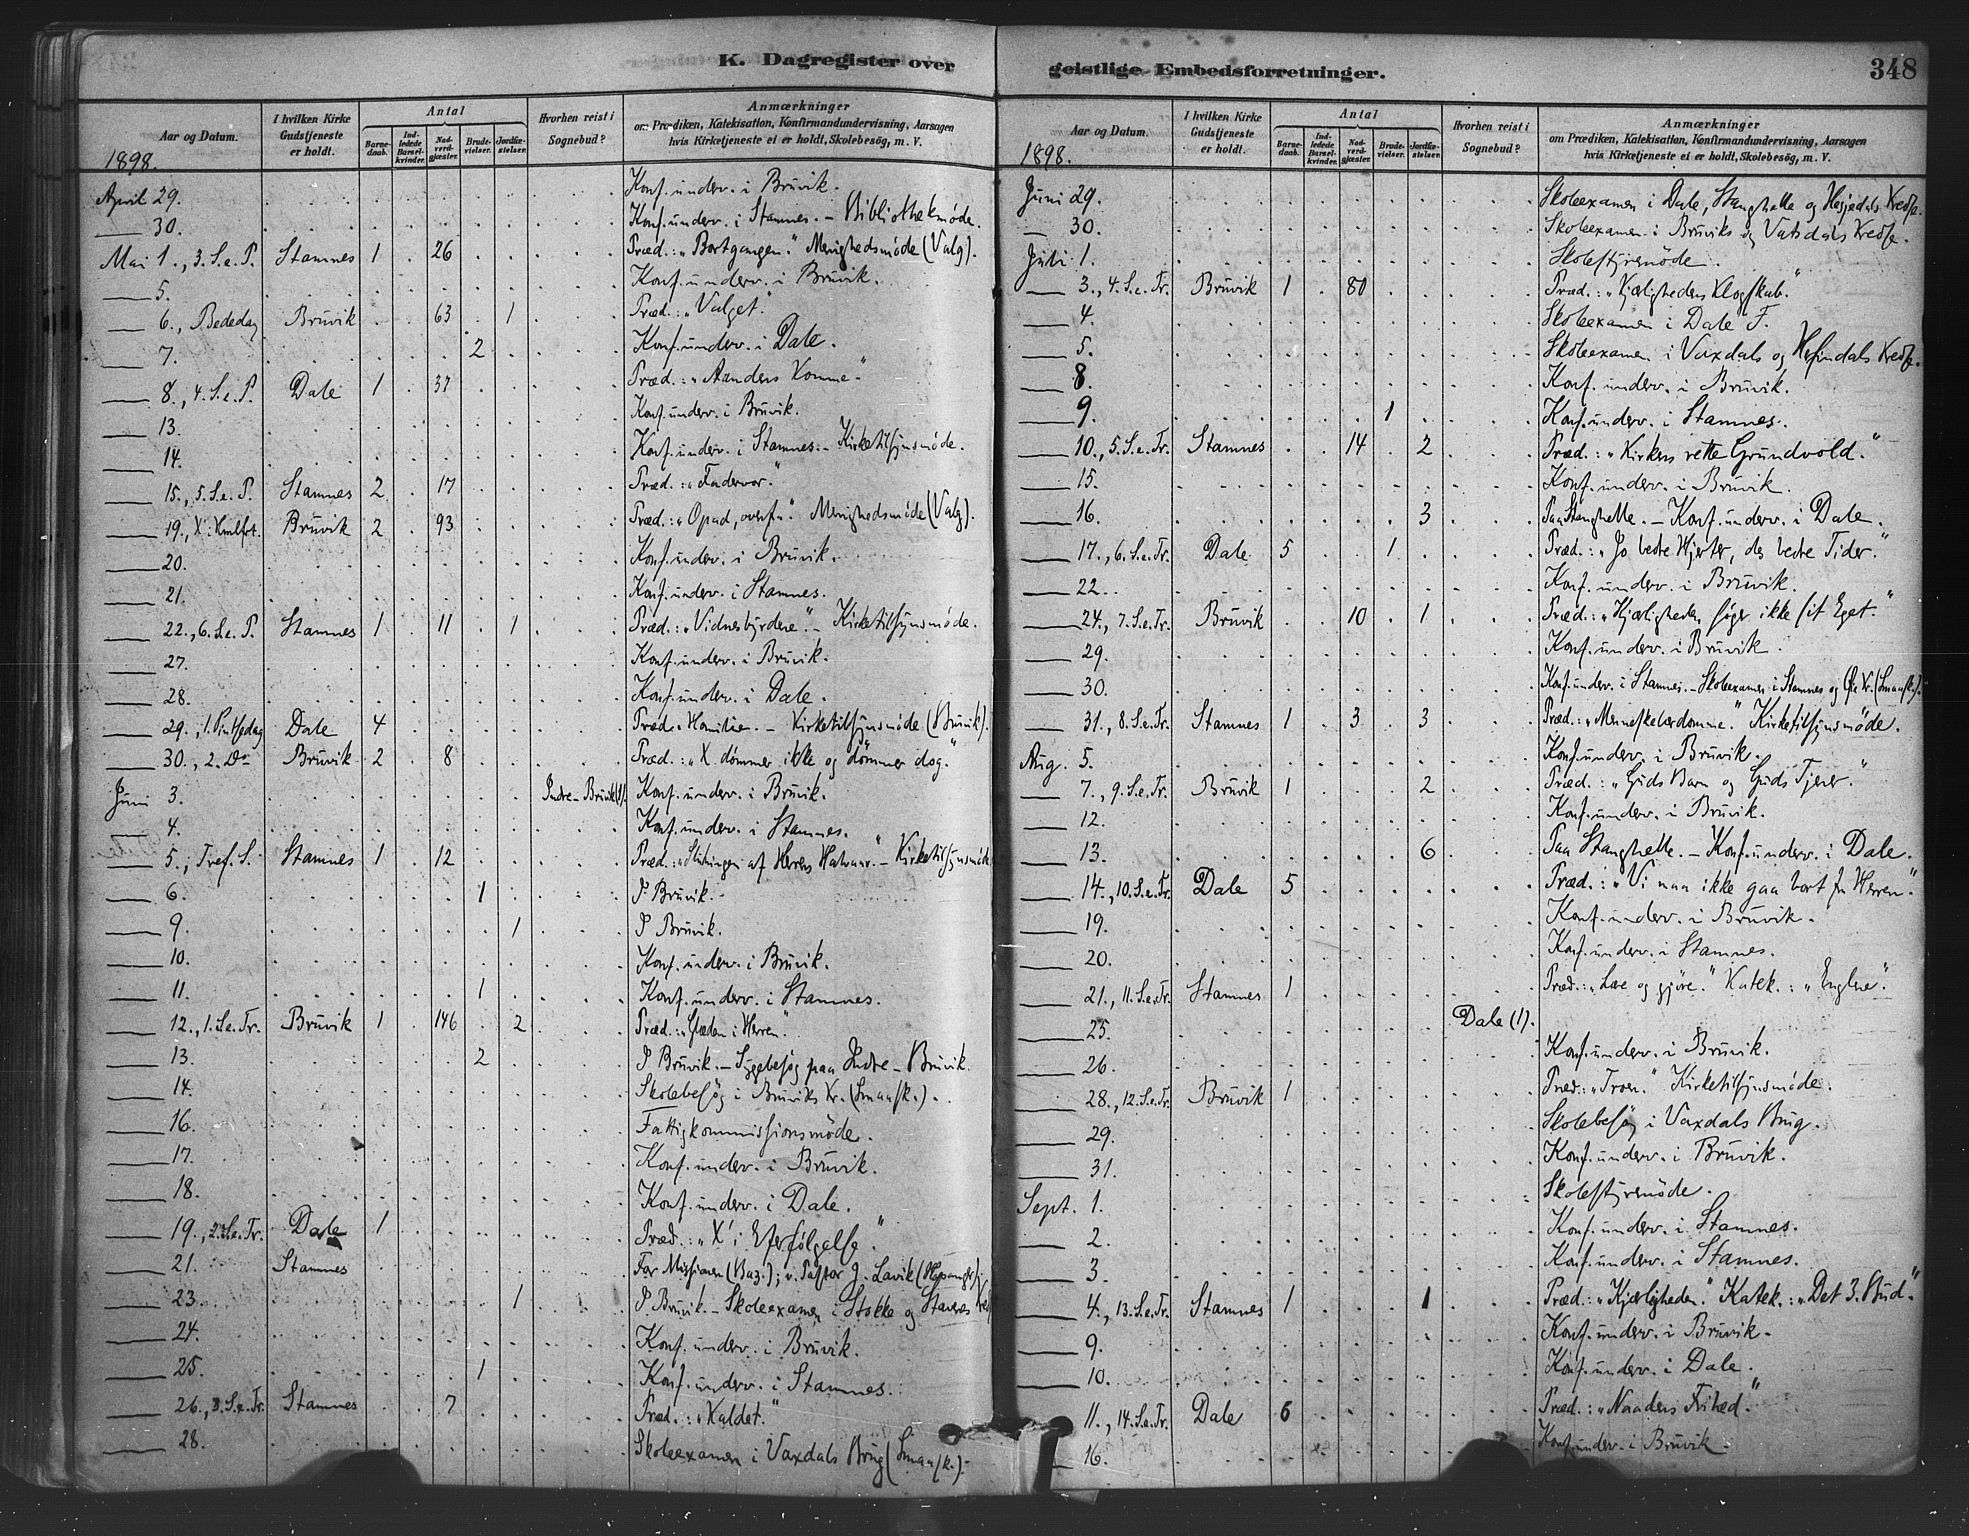 K. Dagregister over
Aar og Datum. | I hvilken Kirke Gudstjeneste er holdt. | Antal | Barnedaab. | Indledede Barselkvinder. | Nadverdgjæster. | Brudevielser. | Jordfæstelser. | Hvorhen reist i Sognebud? | Anmærkninger om Prædiken, Katekisation, Konfirmandundervisning, Aarsagen hvis Kirketjeneste ei er holdt, Skolebesøg, m. V.
1898.
April 29. Konf. underv. i Bruvik.
30. Konf. underv. i Stamnes. – Bibliothekmøde.
Mai 1., 3. S. e. P. Stamnes 1 26 Præd.: „Bortgangen." Menighedsmøde (Valg).
5. Konf. underv. i Bruvik.
6., Bededag Bruvik 63 1 Præd.: „Valget."
7. 2 Konf. underv. i Dale.
8., 4. S. e. P. Dale 1 37 Præd.: „Aandens Komme"
13. Konf. underv. i Bruvik.
14. Konf. underv. i Stamnes. – Kirketilsynsmøde.
15., 5. S. e. P. Stamnes 2 17 Præd.: „Fadervor."
19., X' Hmlfrt. Bruvik 2 93 Præd.: „Opad, Menighedsmøde (Valg).
20. Konf. underv. i Bruvik.
21. Konf. underv. i Stamnes.
22., 6. S. e. P. Stamnes 1 11 1 Præd.: „Vidnesbyrdene". – Kirketilsynsmøde.
27. Konf. underv. i Bruvik.
28. Konf. underv. i Dale.
29., 1. Dale 4 Præd. Homilie. – Kirketilsynsmøde (Bruvik).
30., 2. Do Bruvik 2 8 Præd.: „X. dømmer ikke og dømmer dog."
Juni 3. Indre-Bruvik (1). Konf. underv. i Bruvik.
4. Konf. underv. i Stamnes.
5., Tref. S. Stamnes 1 12 Præd.: af Herrens – Kirketilsynsmøde
6. 1 I Bruvik.
9. 1 I Bruvik.
10. Konf. underv. i Bruvik.
11. 1 Konf. underv. i Stamnes.
12., 1. S. e. Tr. Bruvik 1 146 2 Præd.: „Glæden i Herren".
13. 2 I Bruvik. – Sygebesøg paa Indre-Bruvik.
14. Skolebesøg i Bruviks Kr. (Smaask.).
16. Fattigkommissionsmøde.
17. Konf. underv. i Bruvik.
18. Konf. underv. i Dale.
19., 2. S. e. Tr. Dale 1 Præd.: „X' i Efterfølgelse".
21. Stamnes For Missionen (Baz.); v. Pastor J. Lavik
23. 1 I Bruvik – Skoleexamen i Stokke og
24. Konf. underv. i Bruvik.
25. 1 Konf. underv. i Stamnes.
26., 3. S. e. Tr. Stamnes 7 Præd.: „Kaldet."
28. Skoleexamen i Vaxdals Brug (Smaask.).
geistlige Embedsforretninger.
348
Aar og Datum. | I hvilken Kirke Gudstjeneste er holdt. | Antal | Barnedaab. | Indledede Barselkvinder. | Nadverdgjæster. | Brudevielser. | Jordfæstelser. | Hvorhen reist i Sognebud? | Anmærkninger om Prædiken, Katekisation, Konfirmandundervisning, Aarsagen hvis Kirketjeneste ei er holdt, Skolebesøg, m. V.
1898.
Juni 29. Skoleexamen i Dale, Stanghelle og Hesjedals Kredse.
30. Skoleexamen i Bruviks og Vatsdals Kredse.
Juli 1. Skolestyremøde.
3., 4. S. e. Tr. Bruvik 1 80 Præd.: „Kjærlighedens Klogskab."
4. Skoleexamen i Dale F.
5. Skoleexamen i Vaxdals og Kredse.
8. Konf. underv. i Bruvik.
9. 1 Konf. underv. i Stamnes.
10., 5. S. e. Tr. Stamnes 14 2 Præd.: „Kirkens rette Grundvold."
15. Konf. underv. i Bruvik.
16. 3 Paa Stanghelle. – Konf. underv. i Dale.
17., 6. S. e. Tr. Dale 5 1 Præd.: „Jo bedre Hjerter, des bedre Tider."
22. Konf. underv. i Bruvik.
24., 7. S. e. Tr. Bruvik 10 1 Præd.: „Kjærligheden søger ikke sit Eget."
29. Konf. underv. i Bruvik.
30. Konf. underv. i Stamnes. – Skoleexamen i Stamnes og Kr. (Smaask.).
31., 8. S. e. Tr. Stamnes 1 3 3 Præd.: „Menneskelærdomme." Kirketilsynsmøde.
Aug. 5. Konf. underv. i Bruvik.
7., 9. S. e. Tr. Bruvik 1 2 Præd.: „Guds Barn og Guds Tjener."
12. Konf. underv. i Bruvik.
13. 6 Paa Stanghelle. – Konf. underv. i Dale.
14., 10. S. e. Tr. Dale 5 Præd.: „Vi maa ikke gaa bort fra Herren".
19. Konf. underv. i Bruvik.
20. Konf. underv. i Stamnes.
21., 11. S. e. Tr. Stamnes 1 Præd.: „Lære og gjøre." Katek.: „Englene".
25. Dale (1).
26. Konf. underv. i Bruvik.
28., 12. S. e. Tr. Bruvik 1 Præd.: „Troen." Kirketilsynsmøde.
29. Skolebesøg i Vaxdals Brug.
31. Konf. underv. i Bruvik.
Sept. 1. Skolestyremøde.
2. Konf. underv. i Stamnes.
3. Konf. underv. i Stamnes.
4., 13. S. e. Tr. Stamnes 1 1 Præd.: „Kjærligheden." Katek.: „Det 3. Bud".
9. Konf. underv. i Bruvik.
10. Konf. underv. i Dale.
11., 14. S. e. Tr. Dale 6 Præd.: „Naadens Frihed."
16. Konf. underv. i Bruvik.